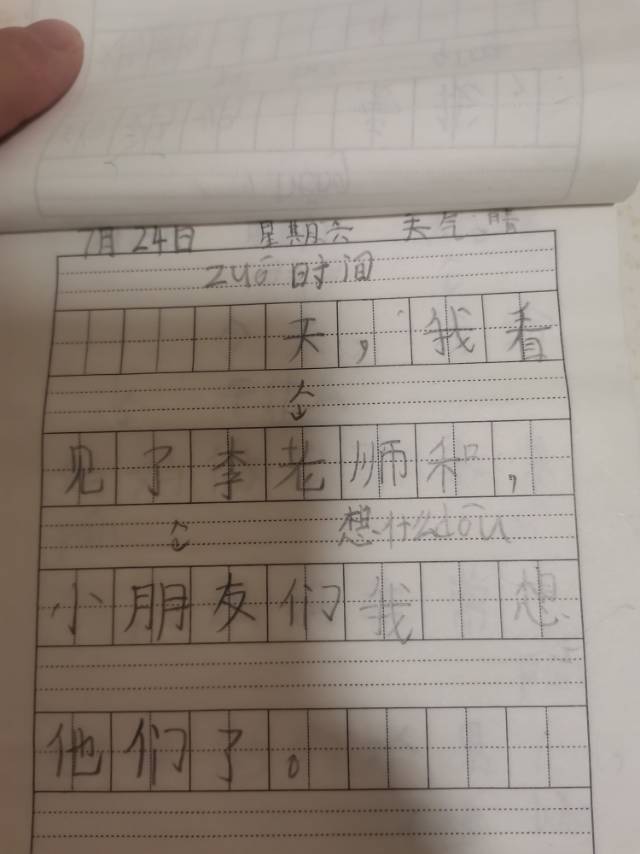 7月24日 星期六 天气:晴
zuó 时间
天,我看
见了李老师和,
想什么dōu
小朋友们我 想
他们了。